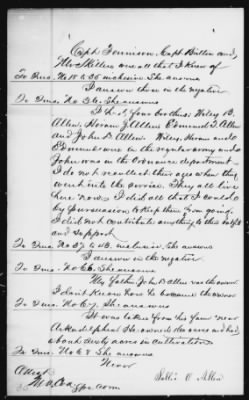 Capt. Tennison, Capt Britton and
Mr Miller were all that I knew of
To Ques. No 18 to 35 inclusive She answers
I answer them in the negative
To Ques. No 36. She answers
I had four brothers Wiley B.
Allen. Hiram J. Allen Edmund D. Allen
and John D. Allen. Wiley, Hiram and
Edmund were in the regular army and
John was in the Ordnance department
I do not recollect their ages when they
went into the service. They all live
here now. I did all that I could
by persuasion to keep them from going.
I did not contribute anything to their outfit
and support.
To Ques No 37 to 43. inclusive. She answers
I answer in the negative.
To Ques. No 66. She answers
My father John Allen was the owner
I dont know how he became the owner
To Ques. No 67. She answers
It was taken from his farm near
Arkadelphia. He owned the acres and had
about acres in cultivation
To Ques. No 68 She answers
Never
Attest
Sallie O. Allen
Spe. Com